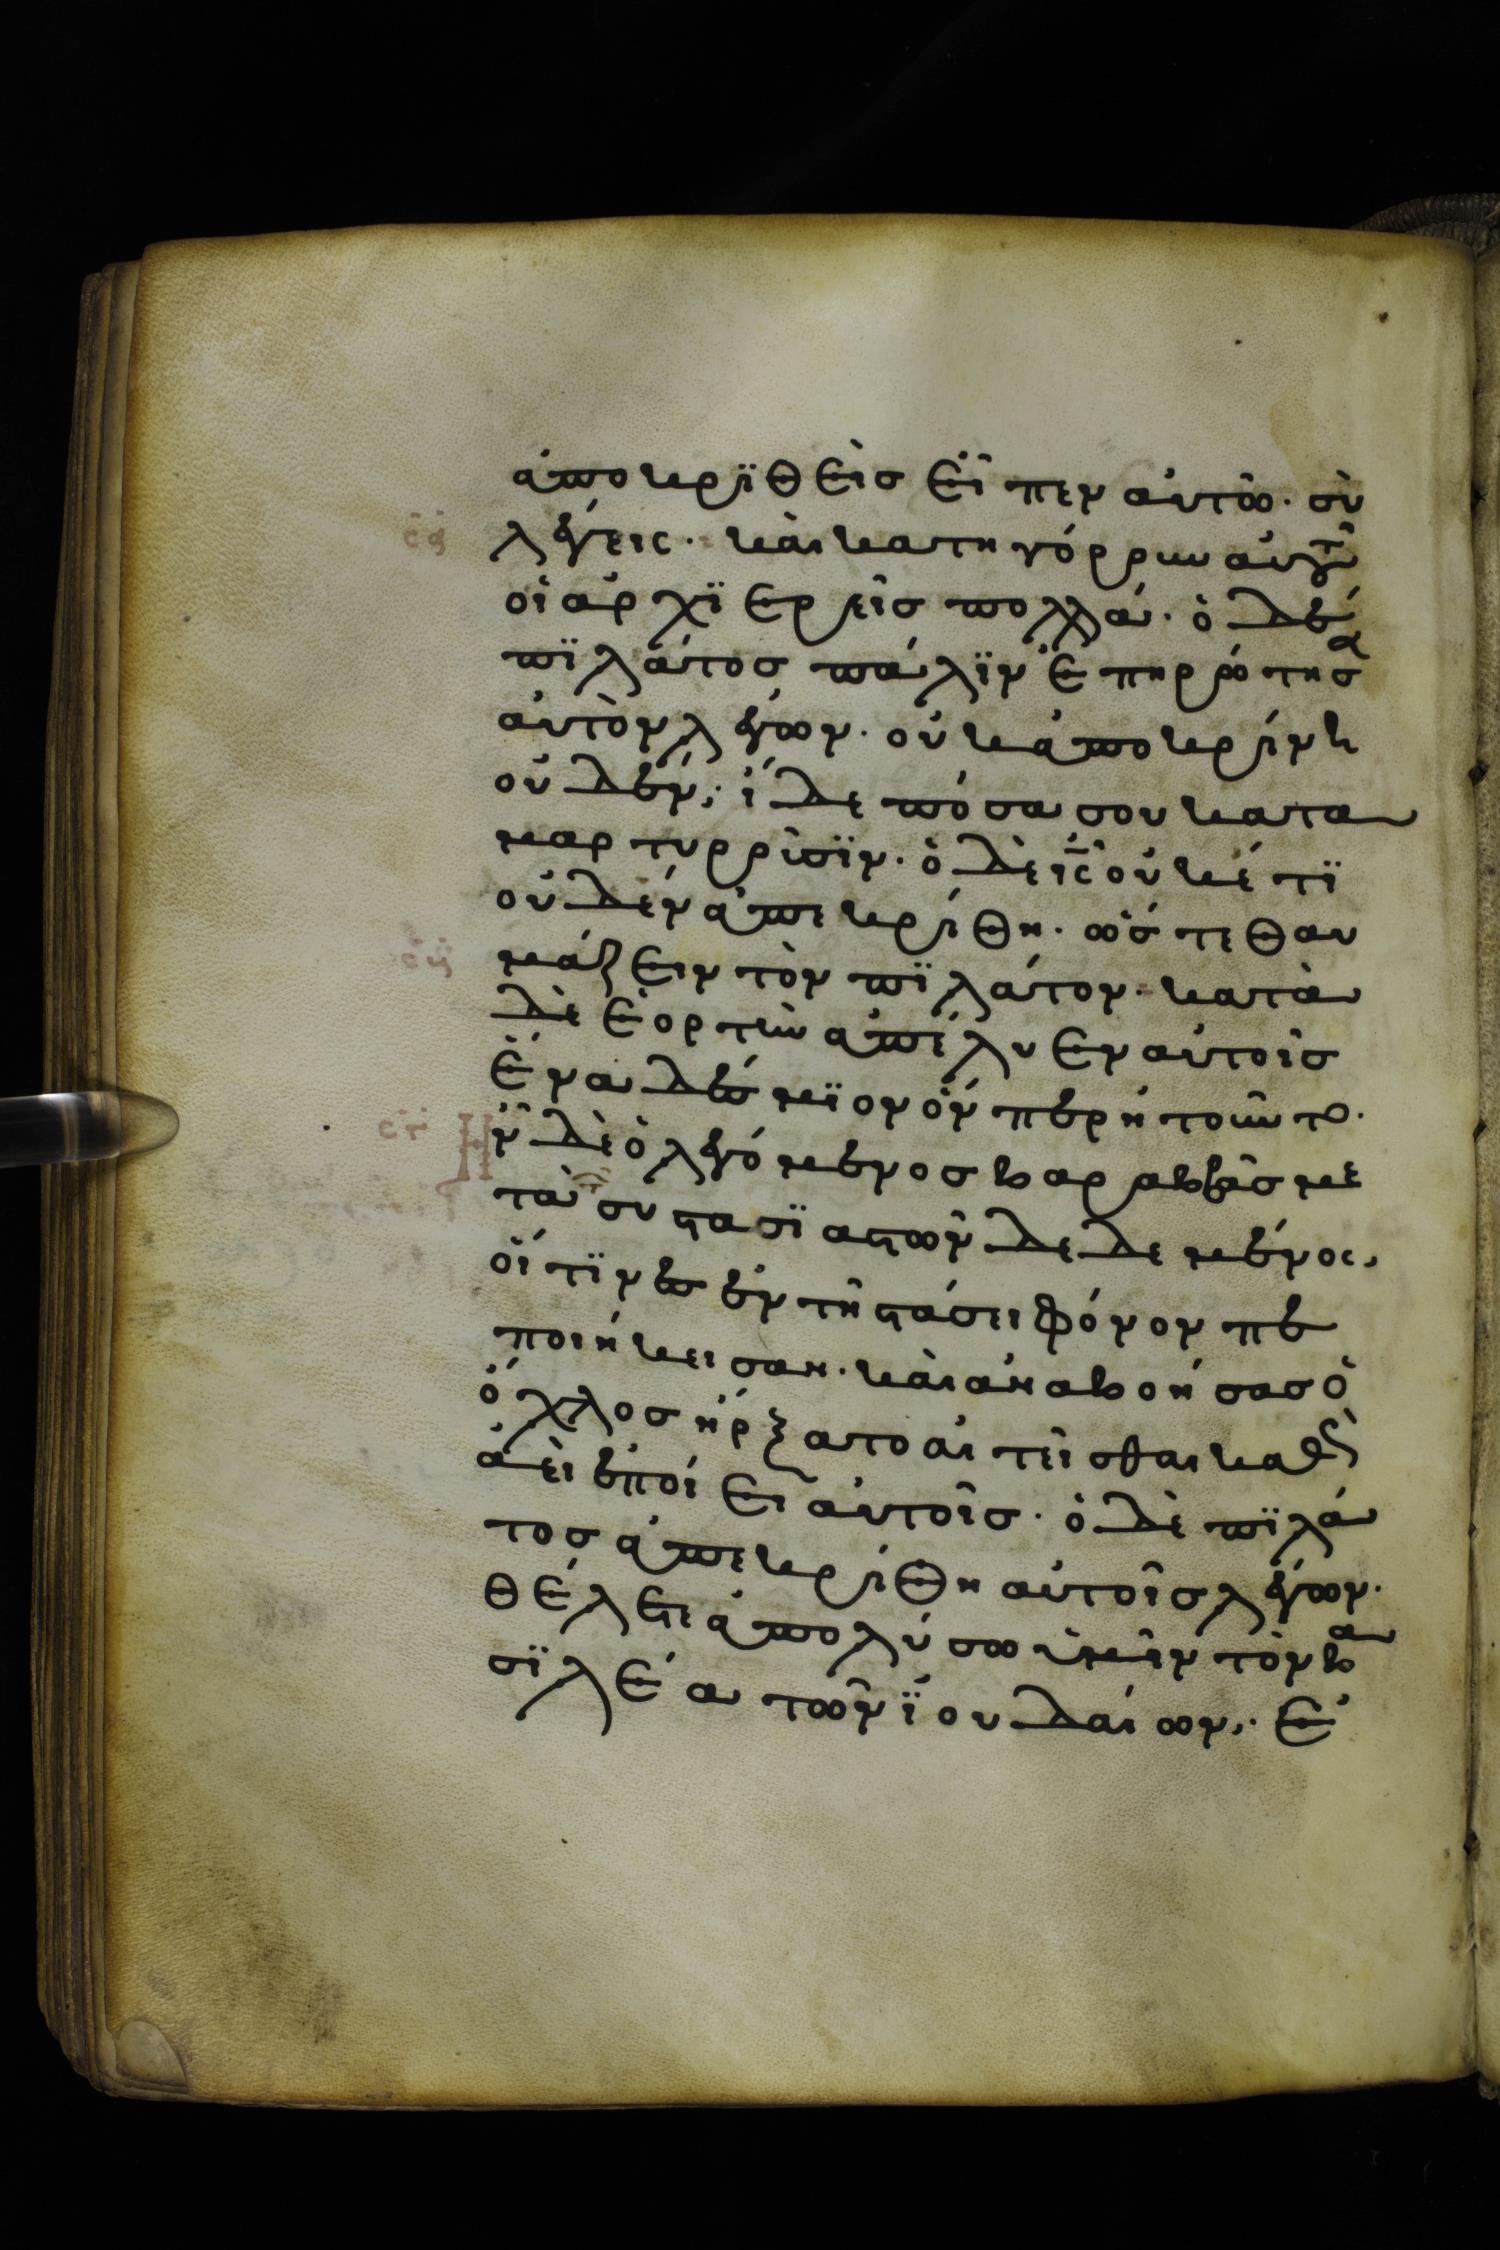 ἀποκρϊθεὶσ εἶπεν αὐτῶ· σὺ
λέγεις· καὶ κατηγόρρουν αὐτοῦ
οἱ ἀρχϊερεῖσ πολλά· ὁ δὲ
πϊλάτοσ πάλϊν ἐπηρρώτησα
αὐτὸν λέγων· οὐκ ἀποκρίνη
οὐδέν; ἴδε πόσα σου κατα
μαρτυρρῖσϊν· ὁ δὲ ις οὐκέτϊ
οὐδὲν ἀπεκρίθη· ὥστε θαυ
μάζειν τὸν πϊλάτον· κατὰ
δὲ ἑορτὴν ἀπέλυεν αὐτοῖσ
ἕνα δέσμϊον ὅνπερ ἠτοῦντο·
ἦν δὲ ὁ λεγόμενοσ βαρραββᾶσ με
τὰ συστασϊαστῶν δεδεμένος,
οἵτϊνεσ ἐν τῆ στάσει φόνον πε
ποιήκεισαν· καὶ ἀναβοήσασ ὁ
ὄχλοσ ἤρξατο αἰτεῖσθαι καθὼς
ἀεὶ ἐποίει αὐτοῖσ· ὁ δὲ πϊλά
τοσ ἀπεκρίθη αὐτοῖσ λέγων·
θέλετε ἀπολύσω ὑμῖν τὸν βα
σϊλέα τῶν ϊουδαίων; ἐ